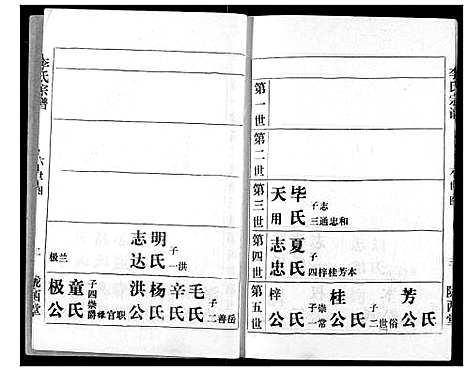 李氏宗谱
第一世
第二世
第三世
天用
毕氏
子志
三通忠和
第四世
志忠
夏氏
子
四梓桂芳本
第五世
梓公
氏
子崇
一常
桂公
氏
子
二世俗
芳公
氏
陇西堂
李氏宗谱
志达
明氏
子
一洪
极兰
毛氏
辛氏
杨氏
洪公
子
二善岳
童氏
极公
子崇
四爵禄官职
二
陇西堂